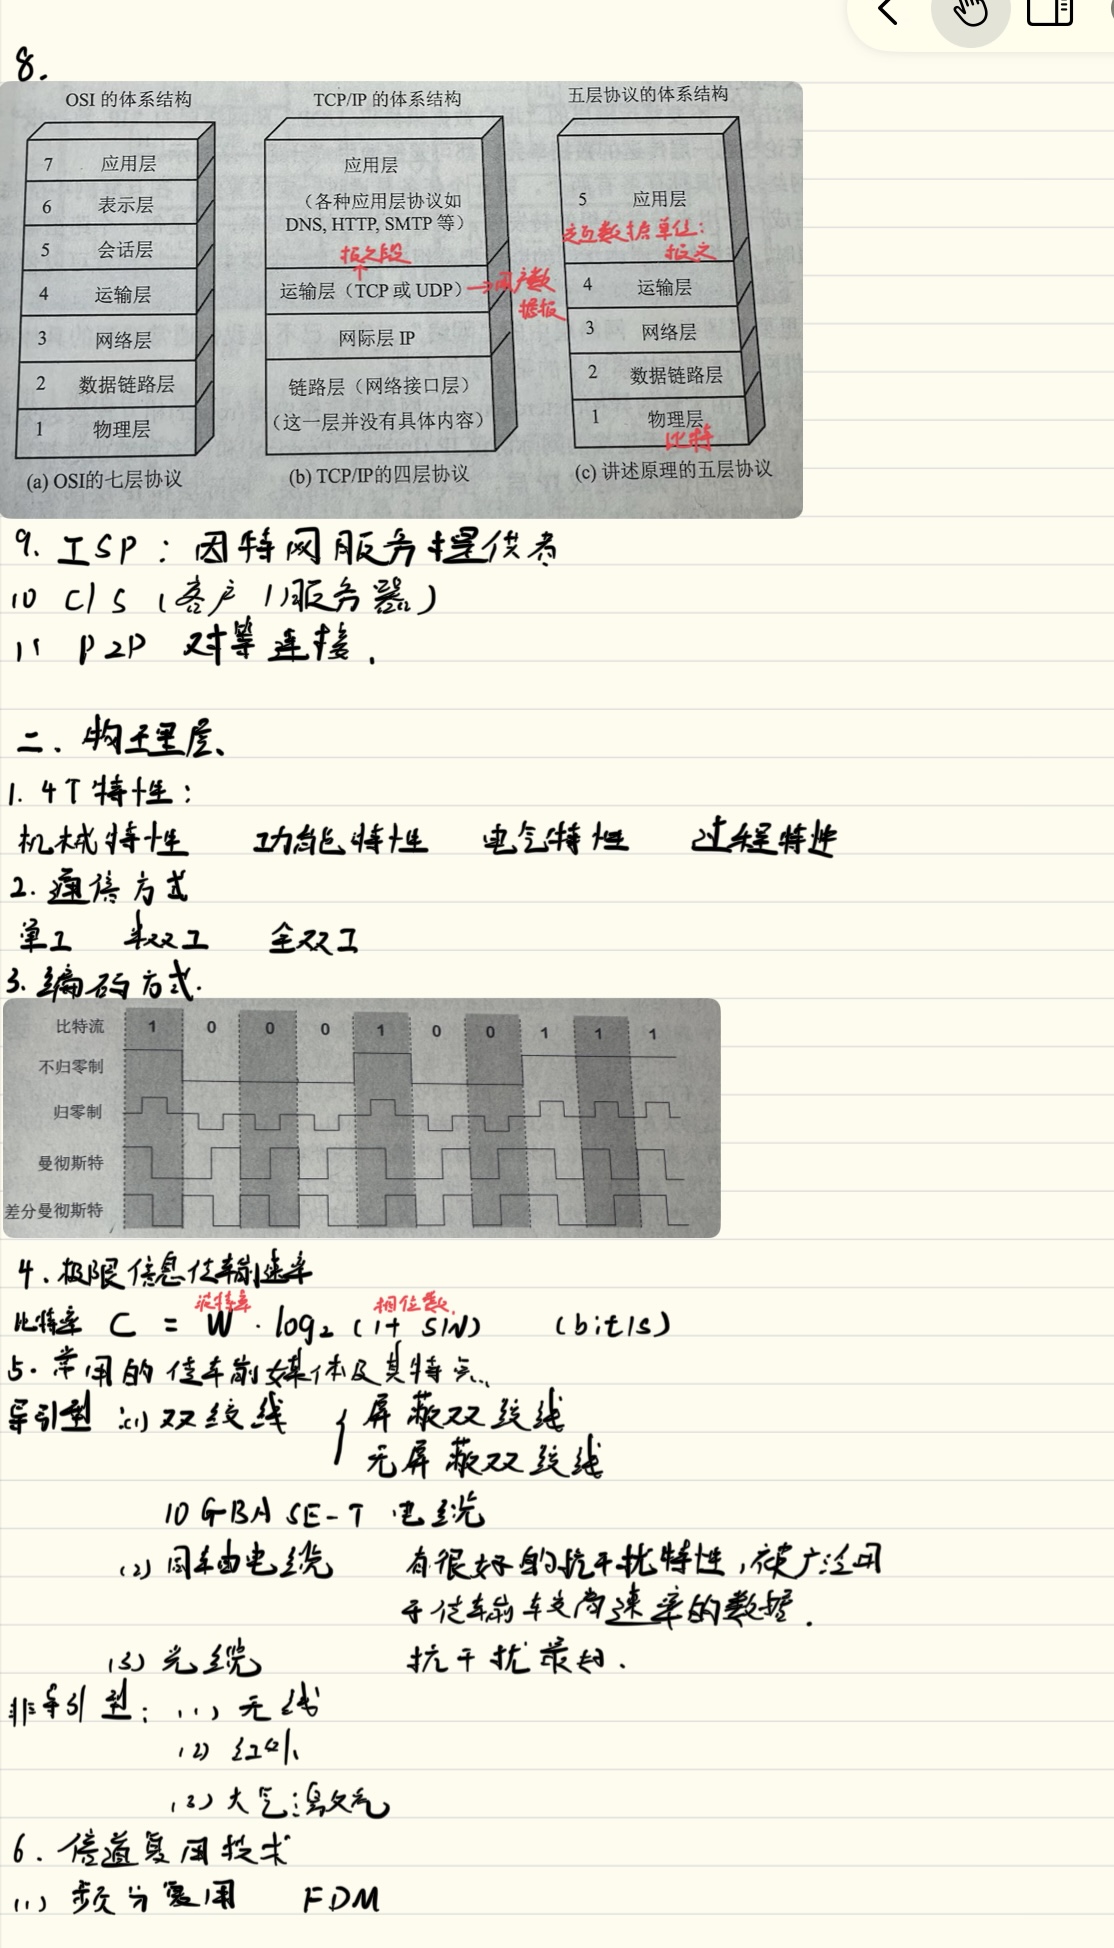 8.
OSI 的体系结构 TCP/IP 的体系结构 五层协议的体系结构
7 应用层
6 表示层
5 会话层
4 运输层
3 网络层
2 数据链路层
1 物理层
(a) OSI的七层协议
应用层
（各种应用层协议如
DNS, HTTP, SMTP 等）
报文段
运输层（TCP 或 UDP）
→用户数
据报
网际层 IP
链路层（网络接口层）
（这一层并没有具体内容）
(b) TCP/IP的四层协议
5 应用层
交互数据单位：
报文
4 运输层
3 网络层
2 数据链路层
1 物理层
比特
(c) 讲述原理的五层协议
9. ISP：因特网服务提供者
10 C/S（客户/服务器）
11 P2P 对等连接.
二、物理层、
1. 4个特性：
机械特性 功能特性 电气特性 过程特性
2. 通信方式
单工 半双工 全双工
3. 编码方式.
比特流 1 0 0 0 1 0 0 1 1 1
不归零制
归零制
曼彻斯特
差分曼彻斯特
4. 极限信息传输速率
波特率 相位数.
比特率 C = W · log₂ (1+ S/N) (bit/s)
5. 常用的传输媒体及其特点.
导引型：(1) 双绞线 { 屏蔽双绞线
无屏蔽双绞线
10GBASE-T 电缆
(2) 同轴电缆 有很好的抗干扰特性，被广泛用
于传输较高速率的数据.
(3) 光缆 抗干扰最好.
非导引型：(1) 无线
(2) 红外
(3) 大气激光
6. 信道复用技术
(1) 频分复用 FDM